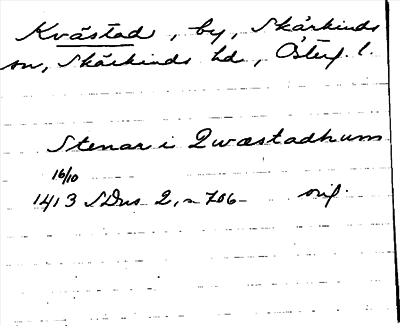 Kvästad, by, Skärkinds
sn, Skärkinds hd, Österg. l.
Stenar i Qwæstadhum
16/10
1413 SDns 2, n 706 orig.